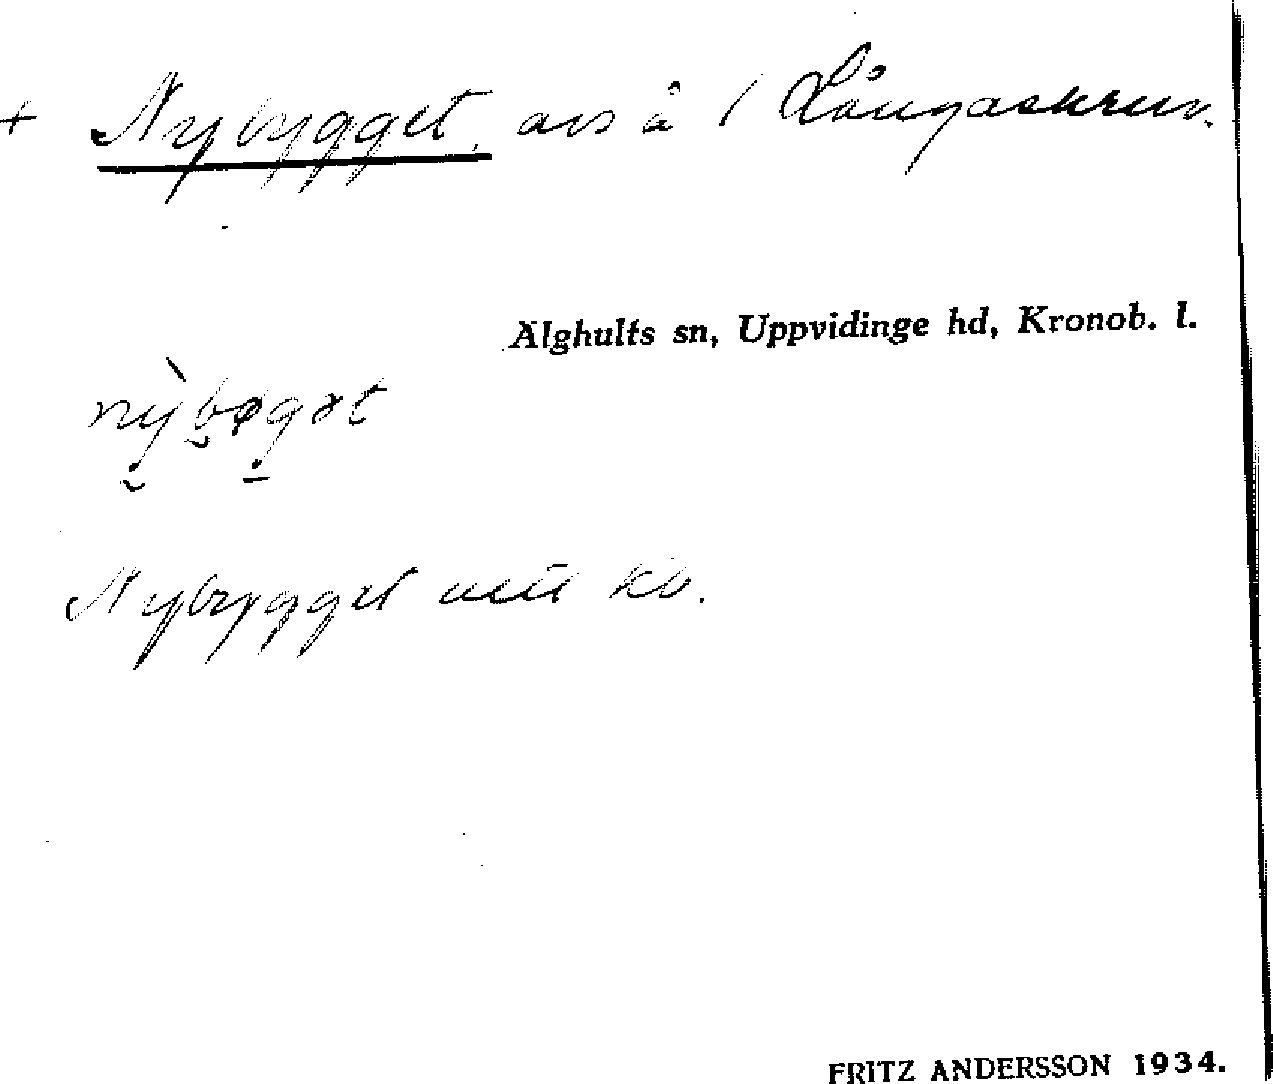 + Nybygget, avs å 1 Långaskruv.
Älghults sn, Uppvidinge hd, Kronob. l.
nỳbøgət
Nybygget utt kb.
FRITZ ANDERSSON 1934.